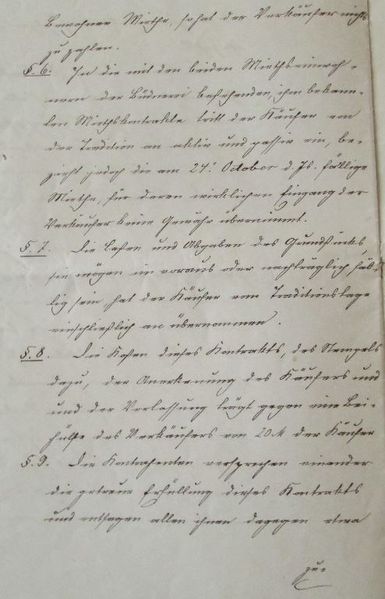 bewohnen Miethe, so hat der Verkäufer nichts
zu zahlen.
§. 6. In die mit den beiden Miethseinwoh-
nern der Büdnerei bestehenden, ihm bekann-
ten Miethskontrakte tritt der Käufer von
der Tradition an aktiv und passiv ein, be-
zieht jedoch die am 24t. October d. Js. fällige
Miethe, für deren wirklichen Eingang der
Verkäufer keine Gewähr übernimmt.
§. 7. Die Lasten und Abgaben des Grundstücks,
sie mögen im voraus oder nachträglich fäl-
lig sein, hat der Käufer vom Traditionstage
einschließlich an übernommen.
§. 8. Die Kosten dieses Kontrakts, des Stempels
dazu, der Anerkennung des Käufers und
und der Verlassung trägt gegen eine Bei-
hülfe des Verkäufers von 20 M der Käufer
§. 9. Die Kontrahenten versprechen einander
die getreue Erfüllung dieses Kontrakts
und entsagen allen ihnen dagegen etwa
zu-